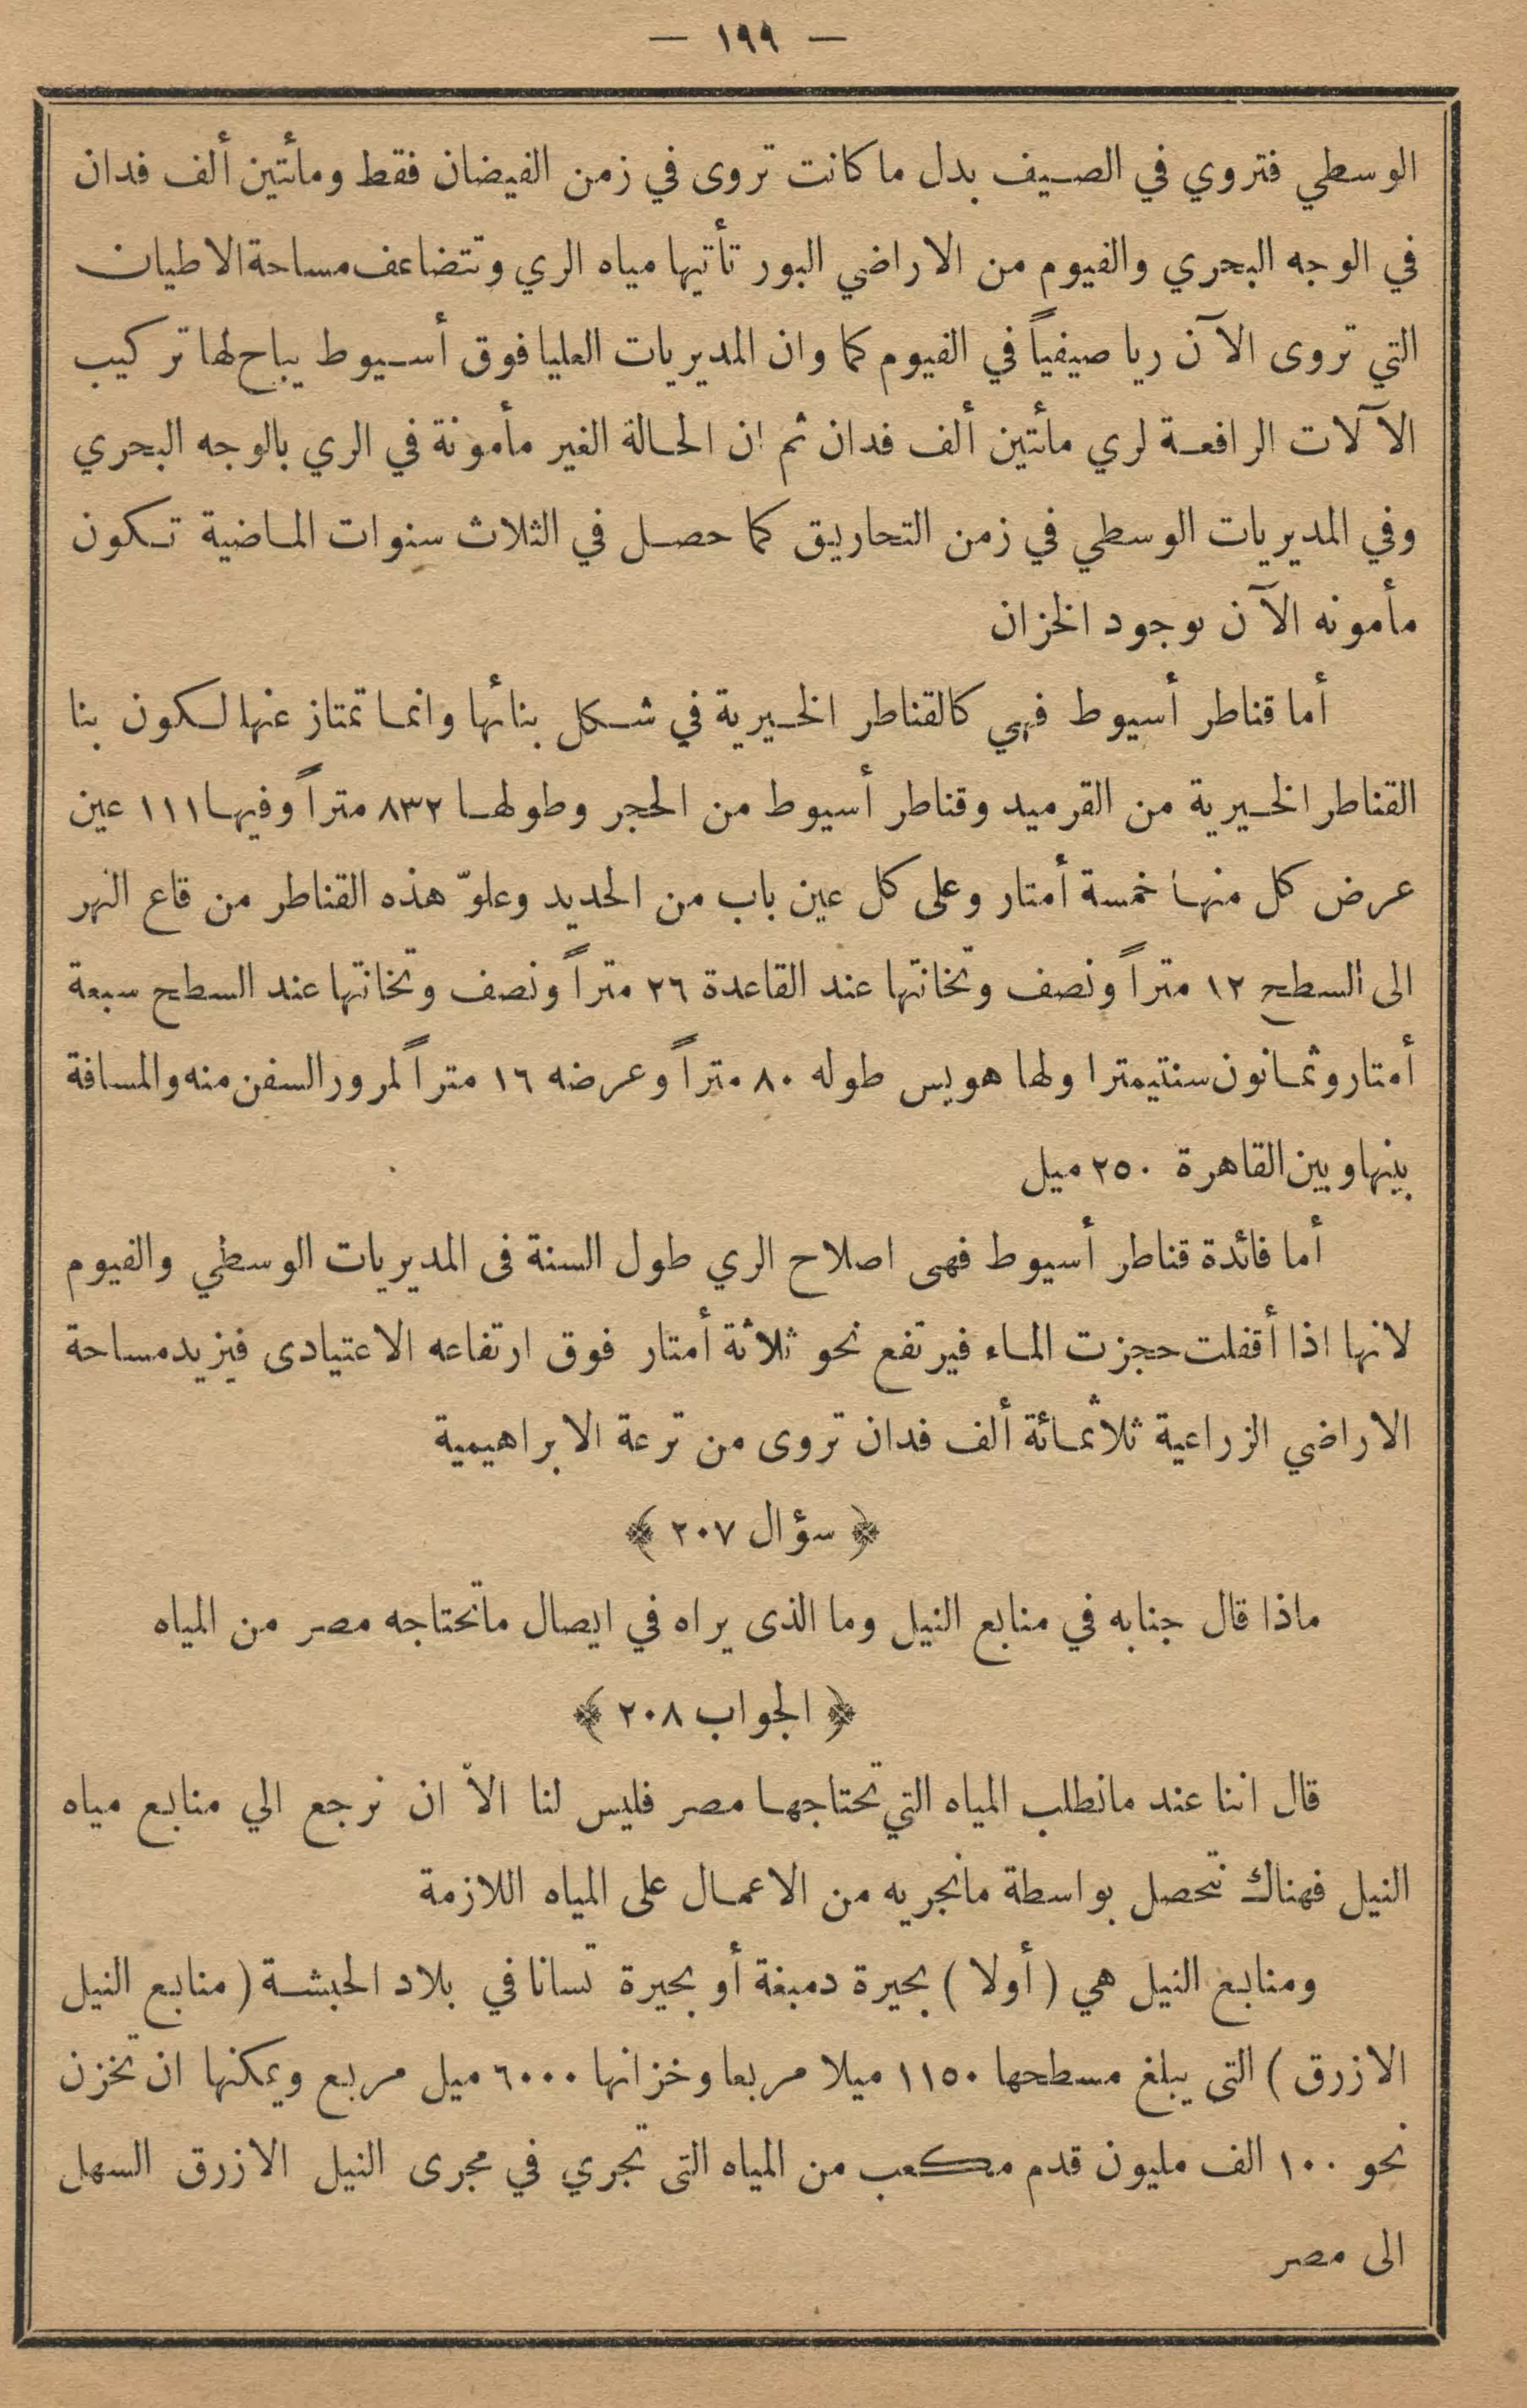 — ١٩٩ —
الوسطي فتروي في الصيف بدل ما كانت تروى في زمن الفيضان فقط ومأتين ألف فدان
في الوجه البحري والفيوم من الاراضي البور تأتيها مياه الري وتتضاعف مساحة الاطيان
التي تروى الآن ريا صيفياً في الفيوم كما وان المديريات العليا فوق أسيوط يباح لها تركيب
الآلات الرافعة لري مأتين ألف فدان ثم ان الحالة الغير مأمونة في الري بالوجه البحري
وفي المديريات الوسطي في زمن التحاريق كما حصل في الثلاث سنوات الماضية تكون
مأمونه الآن بوجود الخزان
أما قناطر أسيوط فهي كالقناطر الخيرية في شكل بنائها وانما تمتاز عنها لكون بنا
القناطر الخيرية من القرميد وقناطر أسيوط من الحجر وطولها ٨٣٢ متراً وفيها ١١١ عين
عرض كل منها خمسة أمتار وعلى كل عين باب من الحديد وعلوّ هذه القناطر من قاع النهر
الى السطح ١٢ متراً ونصف وتخانتها عند القاعدة ٢٦ متراً ونصف وتخانتها عند السطح سبعة
أمتار وثمانون سنتيمترا ولها هويس طوله ٨٠ متراً وعرضه ١٦ متراً لمرور السفن منه والمسافة
بينها وبين القاهرة ٢٥٠ ميل
أما فائدة قناطر أسيوط فهى اصلاح الري طول السنة فى المديريات الوسطي والفيوم
لانها اذا أقفلت حجزت الماء فيرتفع نحو ثلاثة أمتار فوق ارتفاعه الاعتيادى فيزيد مساحة
الاراضي الزراعية ثلاثمائة ألف فدان تروى من ترعة الابراهيمية
﴿ سؤال ٢٠٧ ﴾
ماذا قال جنابه في منابع النيل وما الذى يراه في ايصال ماتحتاجه مصر من المياه
﴿ الجواب ٢٠٨ ﴾
قال اننا عند مانطلب المياه التي تحتاجها مصر فليس لنا الاّ ان نرجع الي منابع مياه
النيل فهناك نتحصل بواسطة مانجريه من الاعمال على المياه اللازمة
ومنابع النيل هي ( أولا ) بحيرة دمبغة أو بحيرة تسانا في بلاد الحبشة ( منابع النيل
الازرق ) التى يبلغ مسطحها ١١٥٠ ميلا مربعا وخزانها ٦٠٠٠ ميل مربع ويمكنها ان تخزن
نحو ١٠٠ الف مليون قدم مكعب من المياه التى تجري في مجرى النيل الازرق السهل
الى مصر